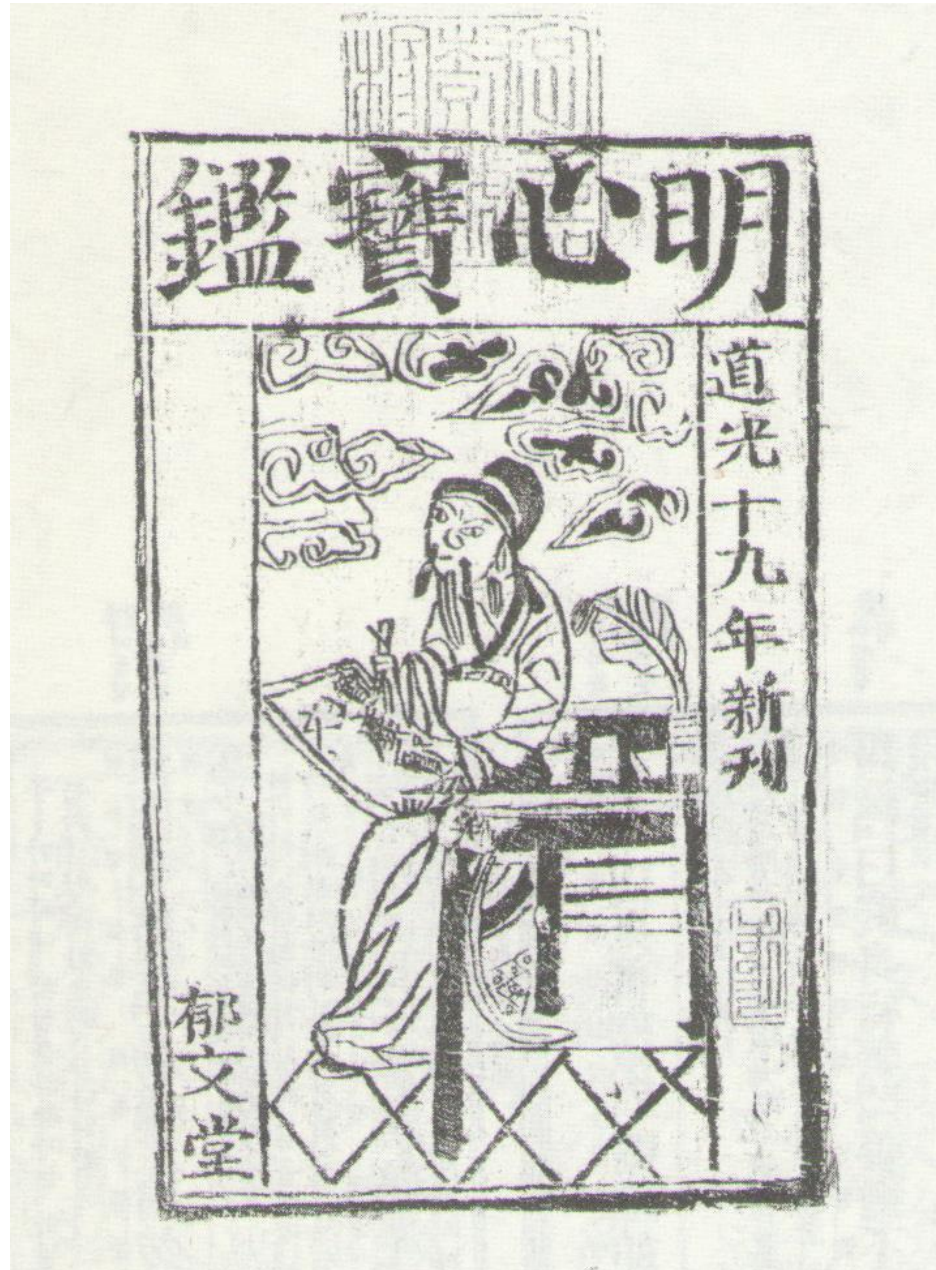 明心寶鑑
道光十九年新刊
郁文堂